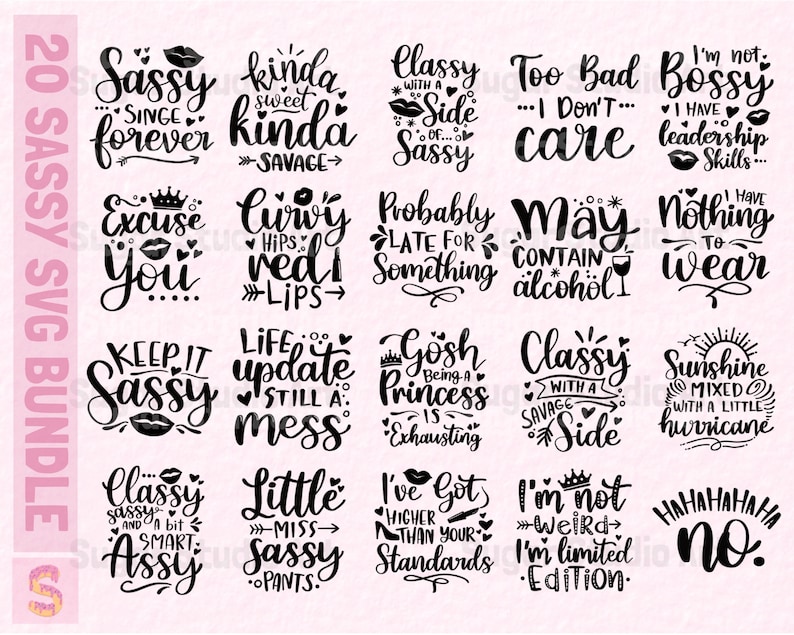 20 SASSY SVG BUNDLE
S
Sassy
SINGE
forever
kinda
sweet
kinda
SAVAGE
Classy
WITH A
Side
OF...
Sassy
Too Bad
I DON'T
care
I'm not
Bossy
I HAVE
leadership
Skills...
Excuse
You
Curvy
HiPS
red
LiPS
Probably
LATE FOR
Something
May
CONTAIN
alcohol
I HAVE
Nothing
TO
wear
KEEP iT
Sassy
LiFE
update
STILL A
mess
Gosh
Being A
Princess
IS
Exhausting
Classy
WITH A
SAVAGE
Side
Sunshine
MIXED
WITH A LITTLE
hurricane
Classy
sassy
AND A bit
SMART
Assy
Little
MISS
Sassy
PANTS
I've Got
HIGHER
THAN YOUR
Standards
I'm not
WEiRD
I'm limited
EDITION
HAHAHAHAHA
no.
Sugar Studio Art